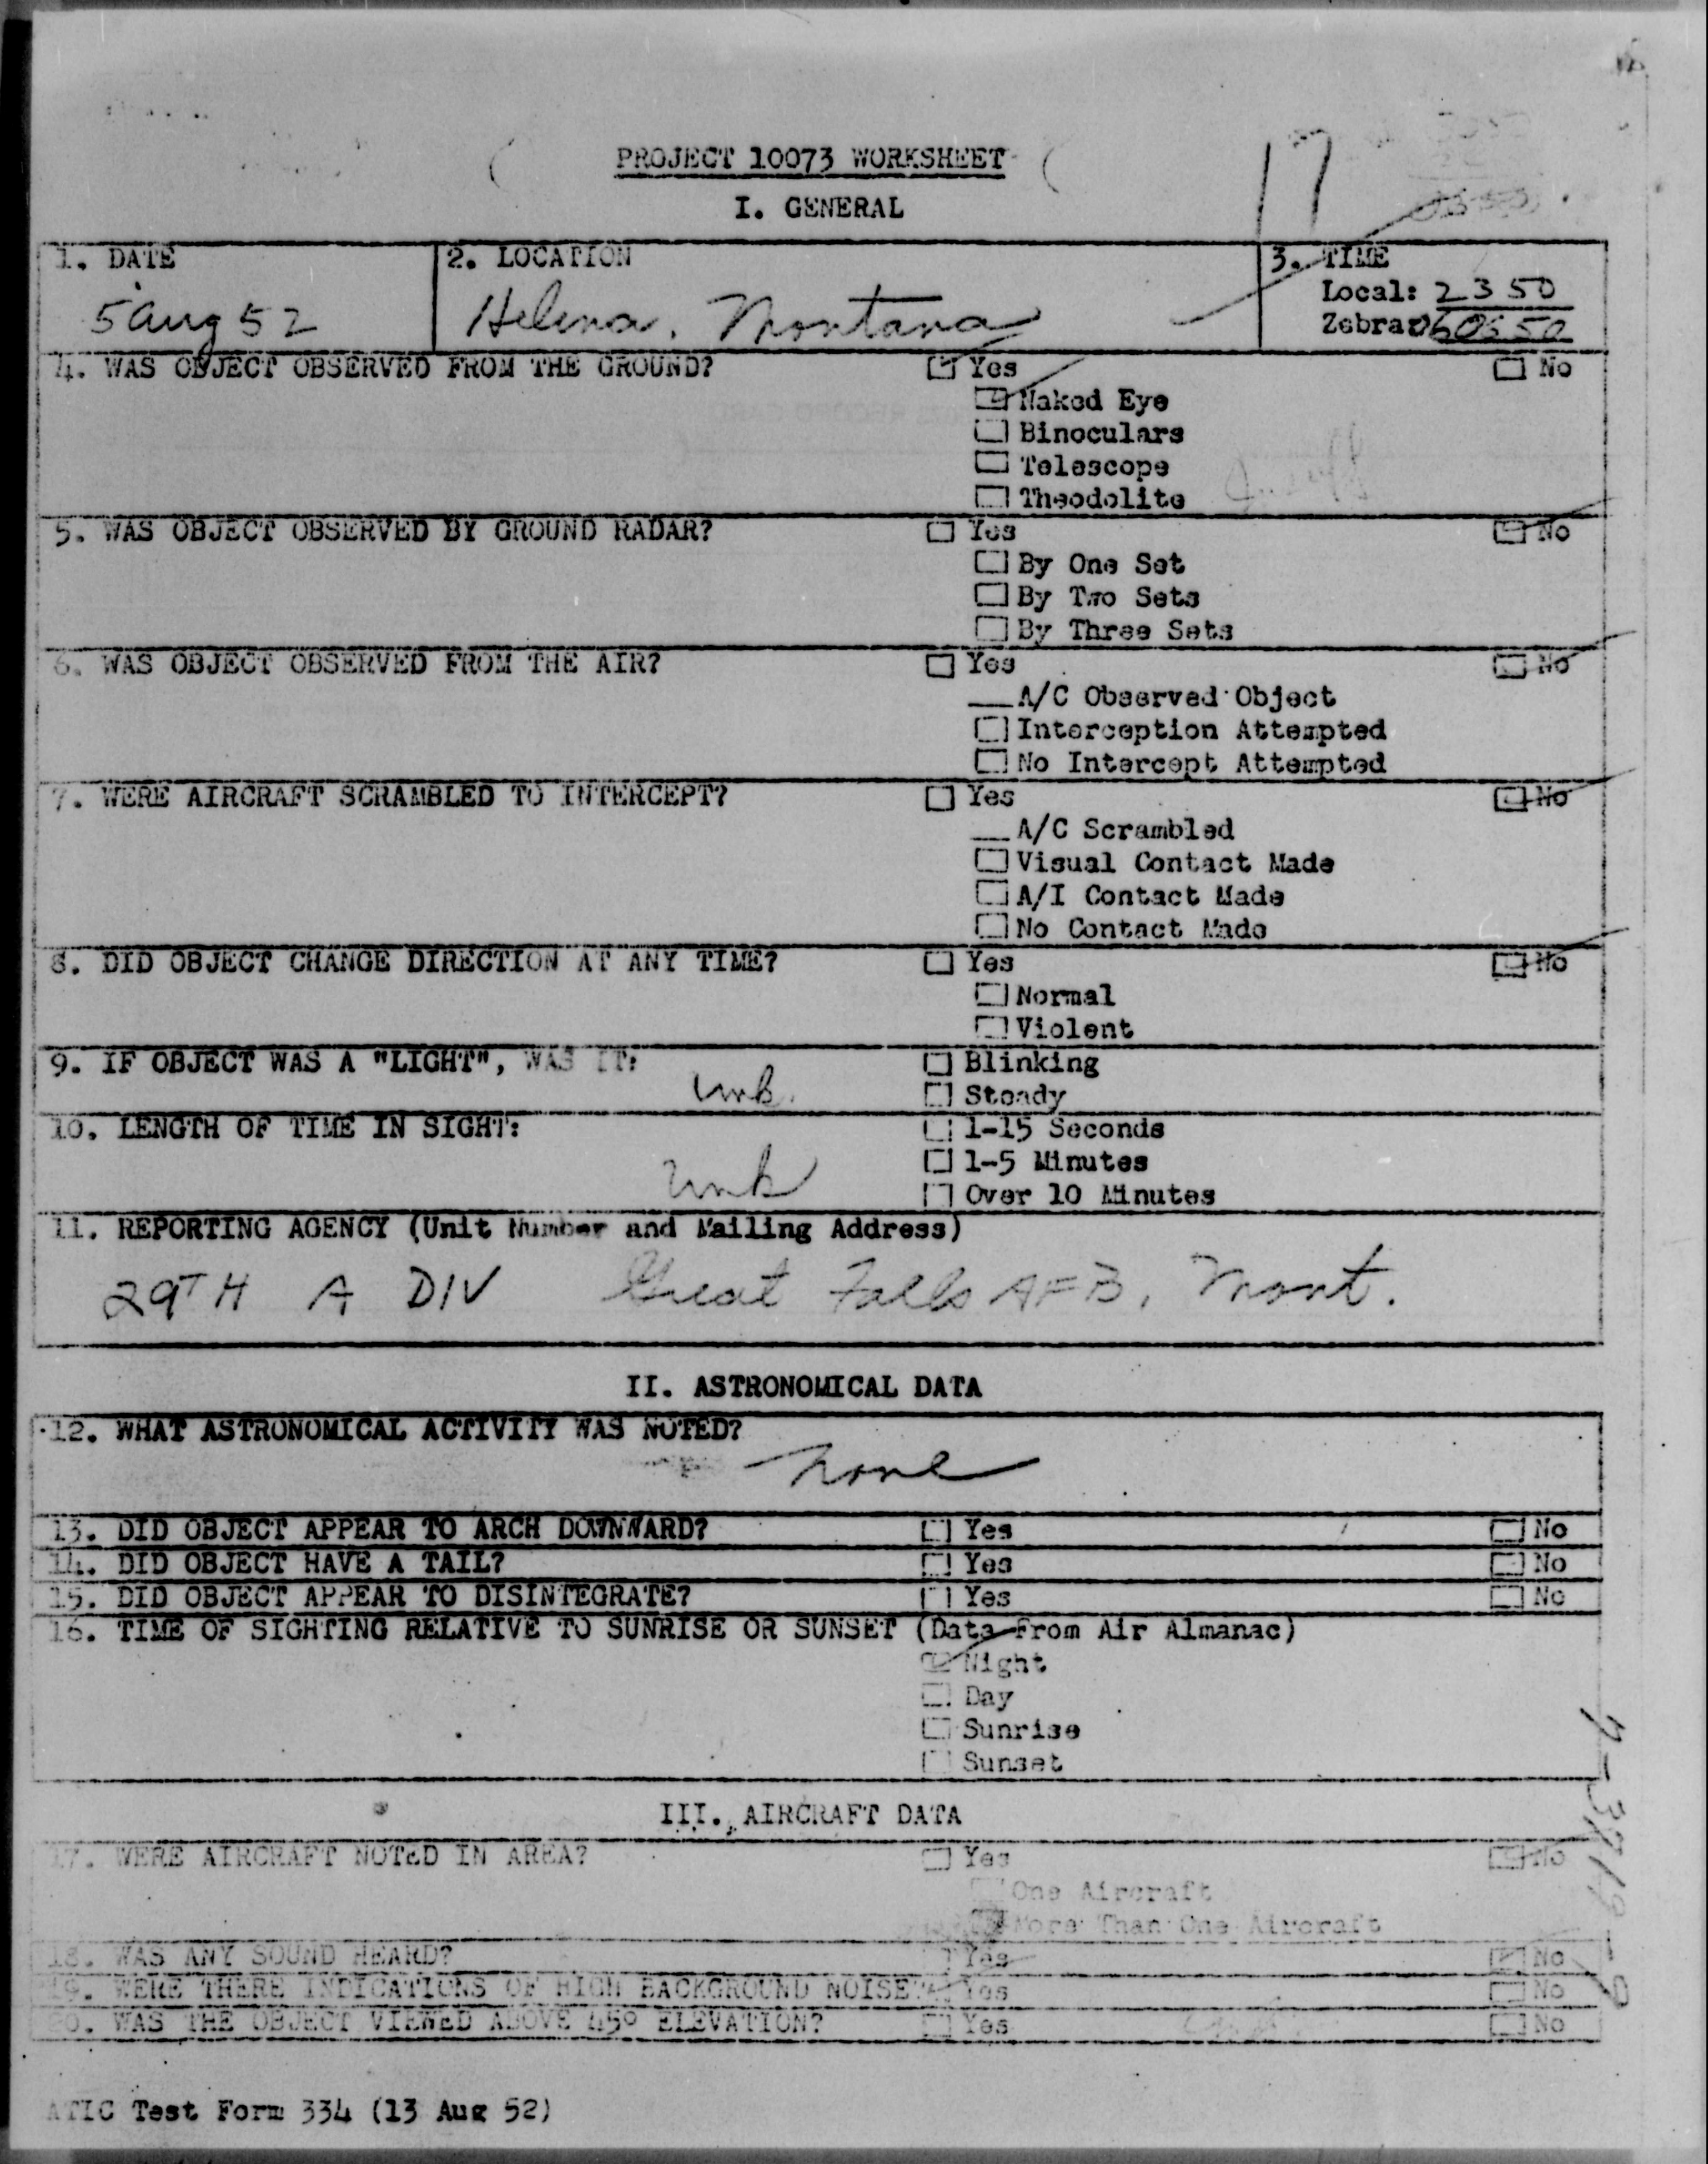 PROJECT 10073 WORKSHEET
17
I. GENERAL
1. DATE
5 Aug 52
2. LOCATION
Helena, Montana
3. TIME
Local: 2350
Zebra: 060650
4. WAS OBJECT OBSERVED FROM THE GROUND?
Yes No
Naked Eye
Binoculars
Telescope
Theodolite
5. WAS OBJECT OBSERVED BY GROUND RADAR?
Yes No
By One Set
By Two Sets
By Three Sets
6. WAS OBJECT OBSERVED FROM THE AIR?
Yes No
A/C Observed Object
Interception Attempted
No Intercept Attempted
7. WERE AIRCRAFT SCRAMBLED TO INTERCEPT?
Yes No
A/C Scrambled
Visual Contact Made
A/I Contact Made
No Contact Made
8. DID OBJECT CHANGE DIRECTION AT ANY TIME?
Yes No
Normal
Violent
9. IF OBJECT WAS A "LIGHT", WAS IT:
Unk.
Blinking
Steady
10. LENGTH OF TIME IN SIGHT:
Unk
1-15 Seconds
1-5 Minutes
Over 10 Minutes
11. REPORTING AGENCY (Unit Number and Mailing Address)
29TH A DIV Great Falls AFB, Mont.
II. ASTRONOMICAL DATA
12. WHAT ASTRONOMICAL ACTIVITY WAS NOTED?
None
13. DID OBJECT APPEAR TO ARCH DOWNWARD? Yes No
14. DID OBJECT HAVE A TAIL? Yes No
15. DID OBJECT APPEAR TO DISINTEGRATE? Yes No
16. TIME OF SIGHTING RELATIVE TO SUNRISE OR SUNSET (Data From Air Almanac)
Night
Day
Sunrise
Sunset
III. AIRCRAFT DATA
17. WERE AIRCRAFT NOTED IN AREA? Yes No
One Aircraft
More Than One Aircraft
18. WAS ANY SOUND HEARD? Yes No
19. WERE THERE INDICATIONS OF HIGH BACKGROUND NOISE? Yes No
20. WAS THE OBJECT VIEWED ABOVE 45° ELEVATION? Yes No
ATIC Test Form 334 (13 Aug 52)